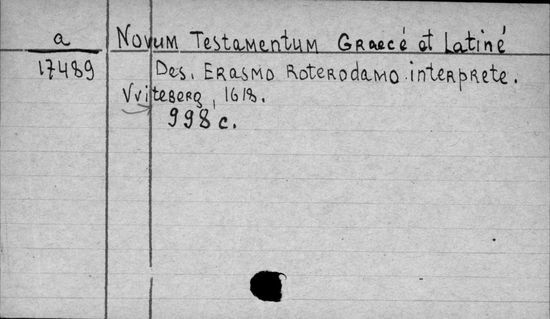 a
17489
Novum Testamentum Graecé et Latiné
Des. Erasmo Roterodamo interprete.
Vviteberg, 1618.
998 c.